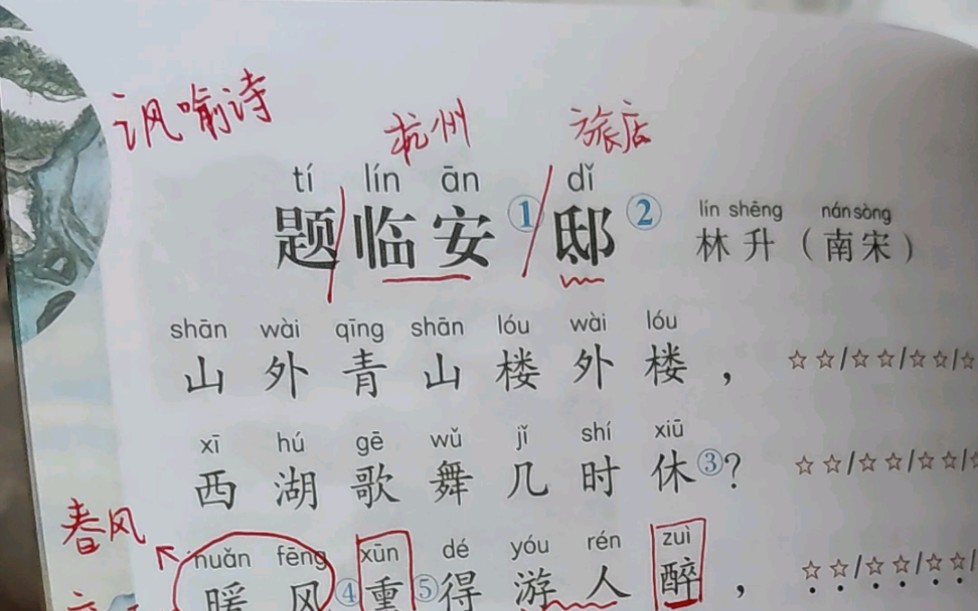 讽喻诗
杭州 旅店
tí lín ān dǐ
题临安① 邸② 
lín shēng nán sòng
林升（南宋）
shān wài qīng shān lóu wài lóu
山外青山楼外楼，☆☆/☆☆/☆☆/☆
xī hú gē wǔ jǐ shí xiū
西湖歌舞几时休③？☆☆/☆☆/☆☆/☆
春风
nuǎn fēng xūn dé yóu rén zuì
暖风④熏⑤得游人醉，☆☆/☆☆/☆☆/